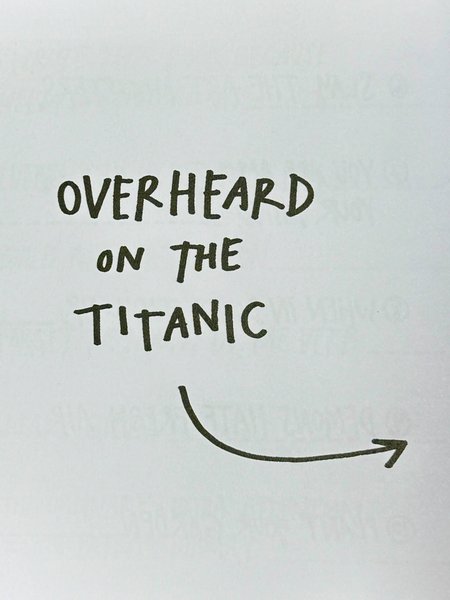 OVERHEARD
ON THE
TITANIC